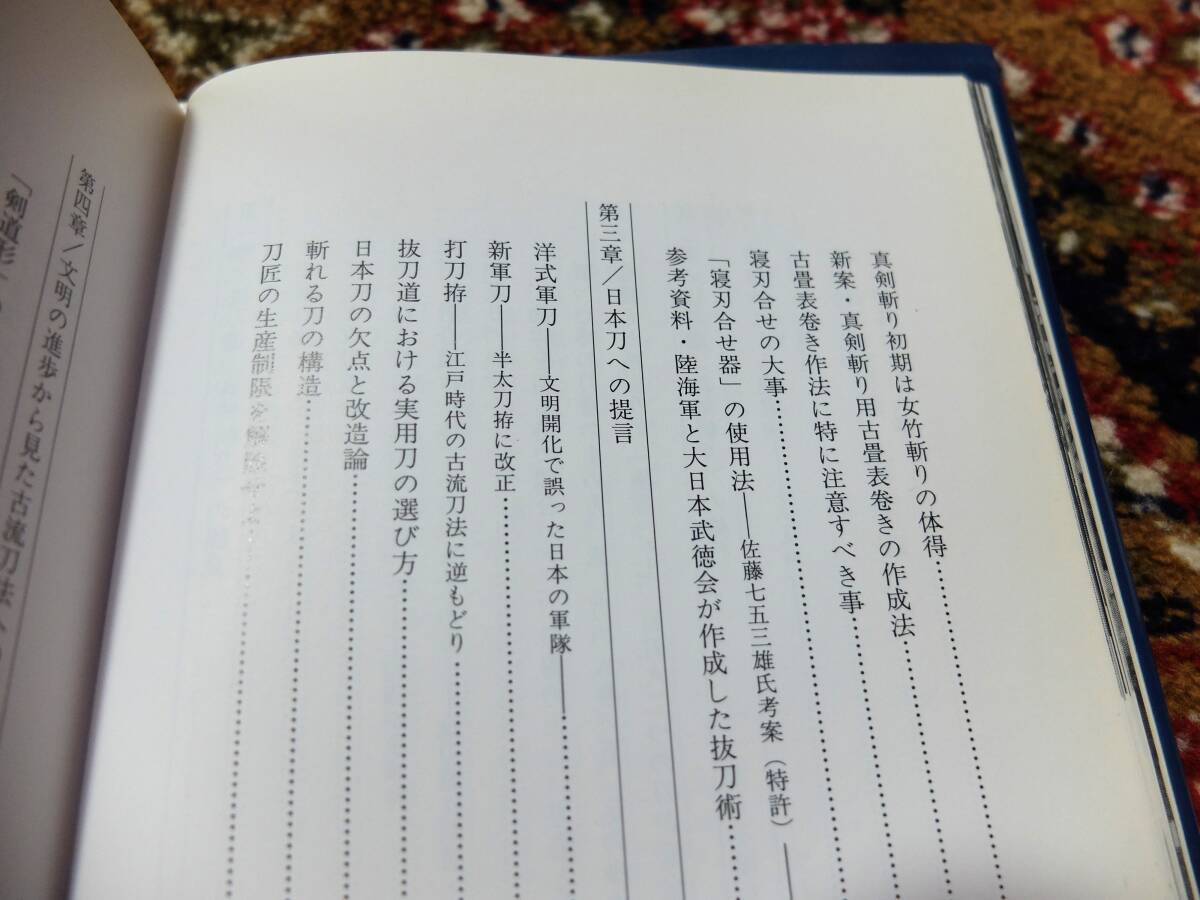 真剣斬り初期は女竹斬りの体得…………
新案・真剣斬り用古畳表巻きの作成法…………
古畳表巻き作法に特に注意すべき事…………
寝刃合せの大事…………
「寝刃合せ器」の使用法――佐藤七五三雄氏考案（特許）――
参考資料・陸海軍と大日本武徳会が作成した抜刀術……
第三章／日本刀への提言
洋式軍刀――文明開化で誤った日本の軍隊――…………
新軍刀――半太刀拵に改正…………
打刀拵――江戸時代の古流刀法に逆もどり…………
抜刀道における実用刀の選び方…………
日本刀の欠点と改造論…………
斬れる刀の構造…………
刀匠の生産制限を
第四章／文明の進歩から見た古流刀法
「剣道形